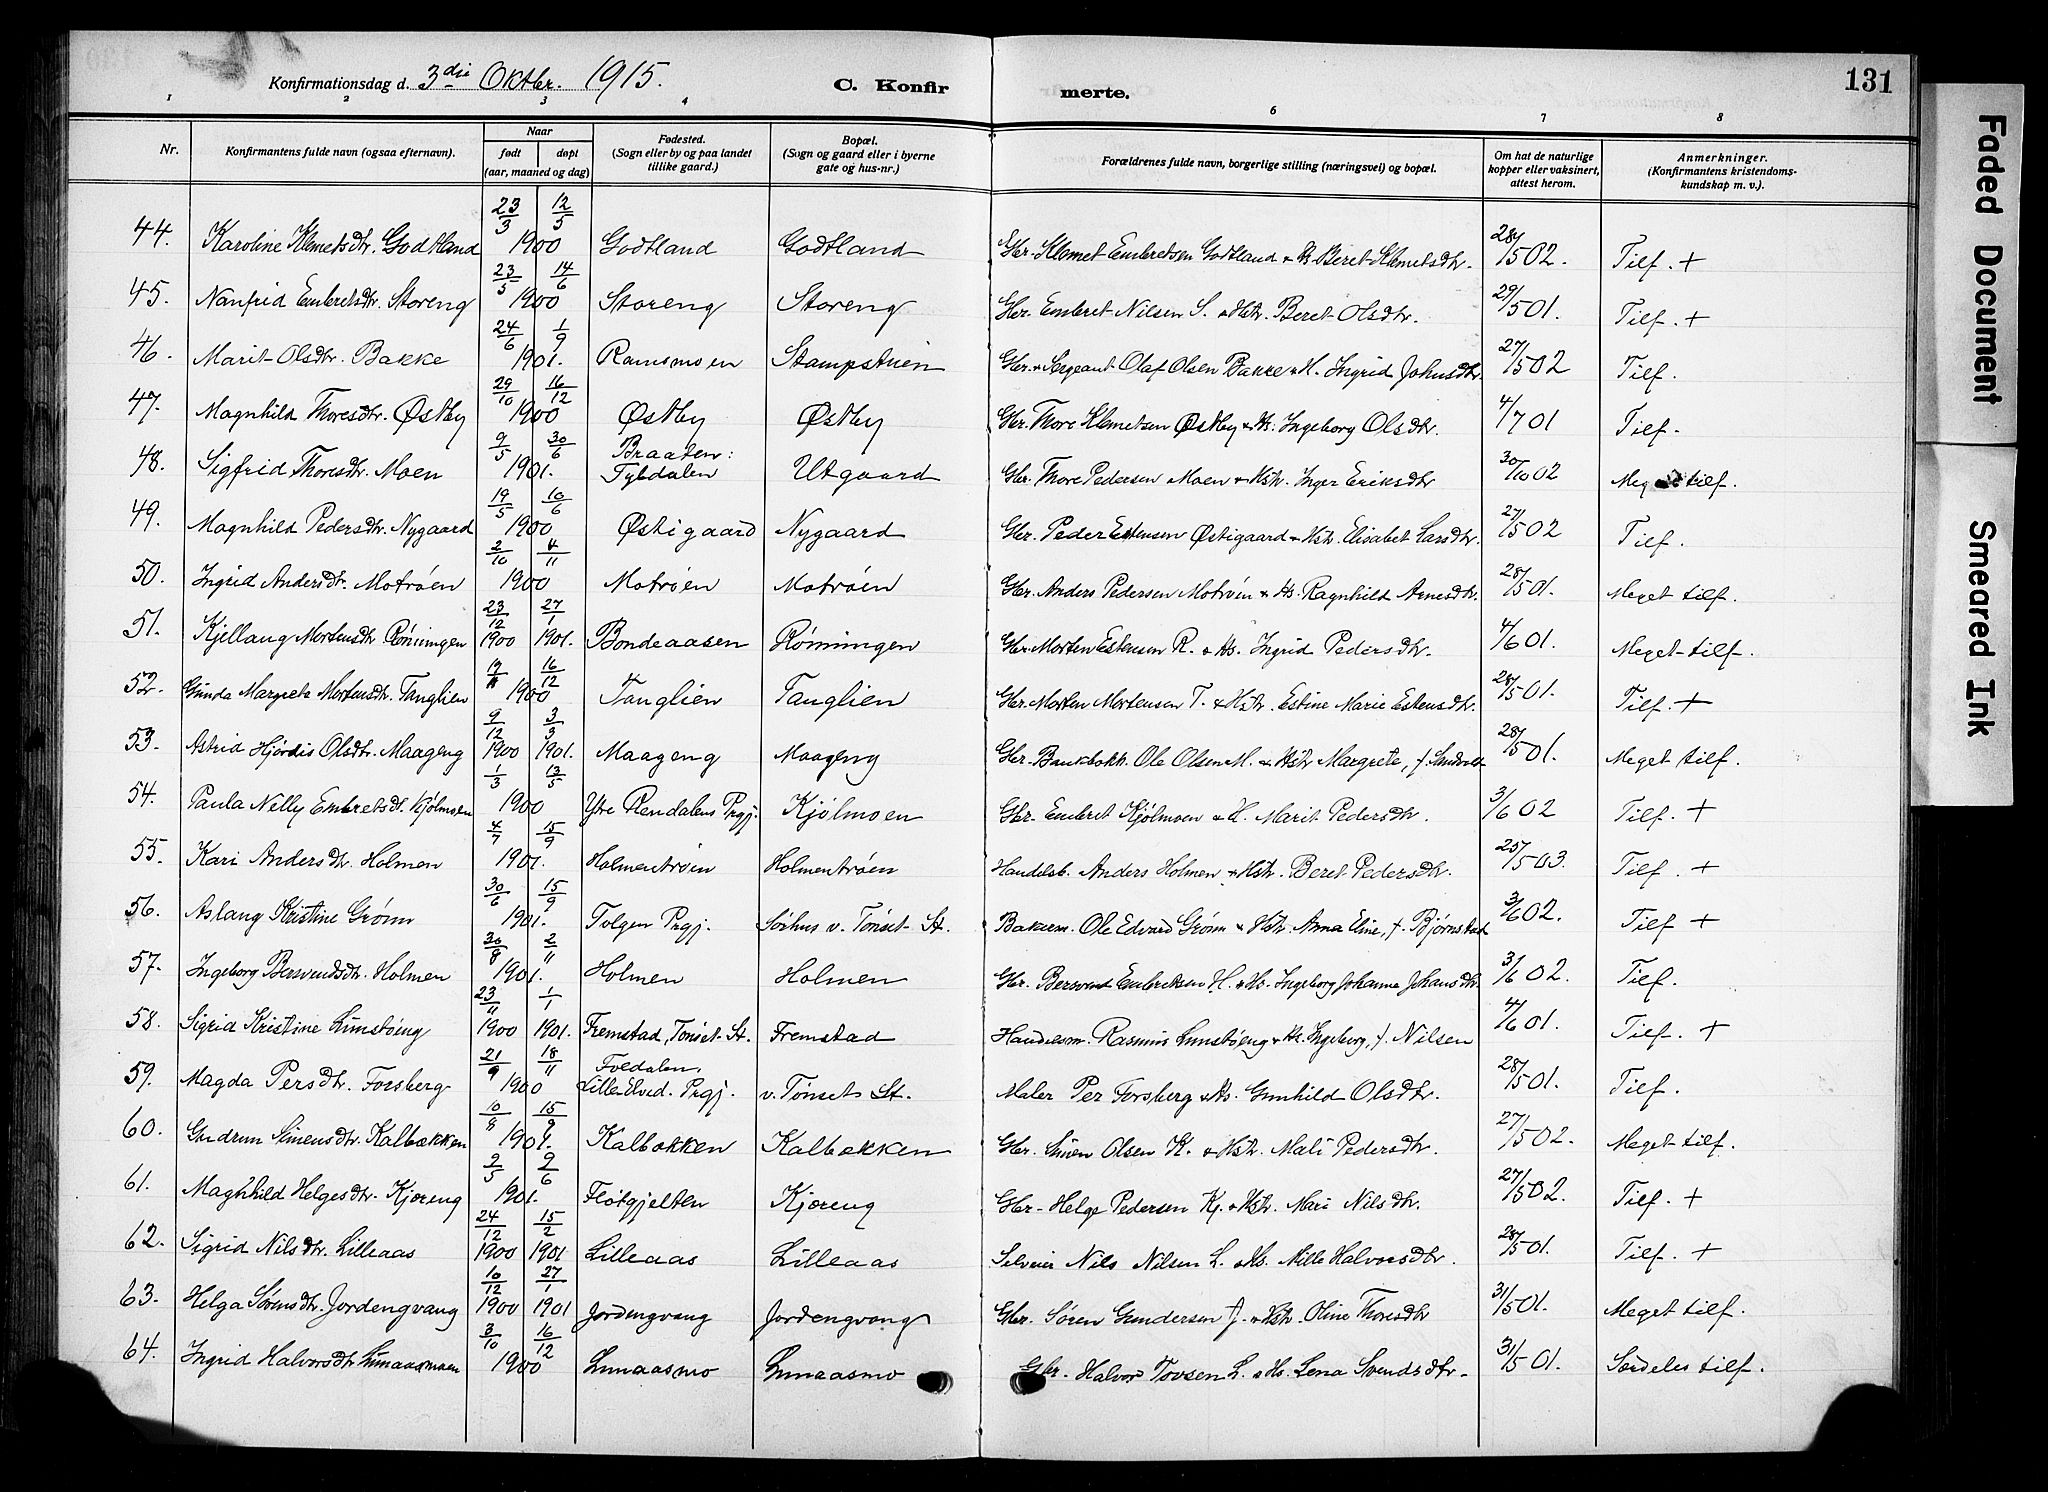 Konfirmationsdag d. 3die Oktbr. 1915. C. Konfirmerte. 131
1 2 3 4 5 6 7 8
Nr. Konfirmantens fulde navn (ogsaa efternavn). Naar født døpt (aar, maaned og dag) Fødested. (Sogn eller by og paa landet tillike gaard.) Bopæl. (Sogn og gaard eller i byerne gate og hus-nr.) Forældrenes fulde navn, borgerlige stilling (næringsvei) og bopæl. Om hat de naturlige kopper eller vaksinert, attest herom. Anmerkninger. (Konfirmantens kristendomskundskap m. v.).
44. Karoline Klemetsdtr. Godtland 23/3 12/5 1900 Godtland Godtland Gbr. Klemet Embretsen Godtland & Hs. Beret Klemetsdtr. 28/5 02. Tilf. +
45. Nanfrid Embretsdtr. Storeng 23/5 14/6 1900 Storeng Storeng Gbr. Embret Nilsen S. & Hstr. Beret Olsdtr. 29/5 01. Tilf. +
46. Marit Olsdtr. Bakke 24/6 1/9 1901. Ramsmoen Stampstuen Gbr. & Sergeant Olaf Olsen Bakke & H. Ingrid Johnsdtr. 27/5 02 Tilf.
47. Magnhild Thoresdtr. Østby 29/10 16/12 1900 Østby Østby Gbr. Thore Klemetsen Østby & Hs. Ingeborg Olsdtr. 4/7 01 Tilf.
48. Sigfrid Thoresdtr. Moen 9/5 30/6 1901. Braaten: Tyldalen Utgaard Gbr. Thore Pedersen Moen & Hstr. Inger Eriksdtr 30/10 02 Meget tilf.
49. Magnhild Pedersdtr. Nygaard 19/5 10/6 1900 Østigaard Nygaard Gbr. Peder Estensen Østigaard & Hstr. Elisabet Larsdtr. 27/5 02 Tilf.
50. Ingrid Andersdtr. Motrøen 2/10 4/11 1900 Motrøen Motrøen Gbr. Anders Pedersen Motrøen & Hs. Ragnhild Arnesdtr. 28/5 01. Meget tilf.
51. Kjellaug Mortensdtr Rønningen 23/12 1900 27/1 1901. Bondeaasen Rønningen Gbr. Morten Estensen R. & Hs. Ingrid Pedersdtr. 4/6 01. Meget tilf.
52. Gunda Margrete Mortensdtr. Tanglien 19/11 16/12 1900 Tanglien Tanglien Gbr. Morten Mortensen T. & Hstr. Estine Marie Estensdtr. 28/5 01. Tilf. +
53. Astrid Hjørdis Olsdtr. Maageng 9/12 1900 3/3 1901. Maageng Maageng Gbr. Bankbokh. Ole Olsen M. & Hstr Margrete, f. 28/5 01. Meget tilf.
54. Paula Nelly Embretsdt. Kjølmoen 1/3 13/5 1900 Ytre Rendalens Prgj. Kjølmoen Gbr. Embret Kjølmoen & H. Marit Pedersdtr. 3/6 02 Tilf. +
55. Kari Andersdtr. Holmen 4/7 15/9 1901. Holmentrøen Holmentrøen Handelsb. Anders Holmen & Hstr. Beret Pedersdtr. 25/5 03. Tilf. +
56. Aslaug Kristine Grønn 30/6 15/9 1901. Tolgen Prgj. Sørhus v. Tønset St. Bakerm. Ole Edvard Grønn & Hstr. Anna Eline, f. Bjørnstad 3/6 02. Tilf. +
57. Ingeborg Bersvendsdtr. Holmen 30/8 2/11 1901. Holmen Holmen Gbr. Bersvend Embriksen H. & Hs. Ingeborg Johanna Johansdtr. 3/6 02. Tilf.
58. Sigrid Kristine Lunstøeng 23/11 1900 1/1 1901. Fremstad, Tønset St. Fremstad Handelsm. Rasmus Lunstøeng & Hs. Ingeborg, f. Nilsen 4/6 01. Tilf. +
59. Magda Persdtr. Forsberg 21/9 18/11 1900 Foldalen, Lille Elvd. Prgj. v. Tønset St. Maler Per Forsberg & Hs. Gunhild Olsdtr. 28/5 01. Tilf.
60. Gudrun Simensdtr. Kalbækken 10/8 15/9 1901. Kalbækken Kalbækken Gbr. Simen Olsen K. & Hstr. Mali Pedersdtr. 27/5 02. Meget tilf.
61. Magnhild Helgesdtr. Kjøreng 2/5 9/6 1901. Fløtgjelten Kjøreng Gbr. Helge Pedersen Kj. & Hstr. Mari Nilsdtr. 27/5 02. Tilf. +
62. Sigrid Nilsdtr. Lilleaas 24/12 1900 15/2 1901 Lilleaas Lilleaas Selveier Nils Nilsen L. & Hs. Mille Halvorsdtr. 28/5 01. Tilf. +
63. Helga Sørensdtr. Jordengvang 10/12 1900 27/1 1901 Jordengvang Jordengvang Gbr. Søren Gundersen J. & Hstr. Oline Thoresdtr 31/5 01. Meget tilf.
64. Ingrid Halvorsdtr. Lunaasmoen 3/10 16/12 1900 Lunaasmo Lunaasmo Gbr. Halvor Tovsen L. & Hs. Lena Svendsdtr. 31/5 01. Særdeles tilf.
Faded Document
Smeared Ink